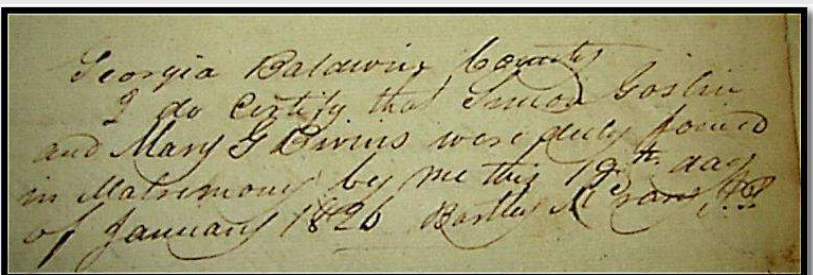 Georgia Baldwin County
I do Certify that Simeon Goslin
and Mary G Bivins were duly joined
in Matrimony by me this 19th day
of January 1826 Bartley McCrary JP